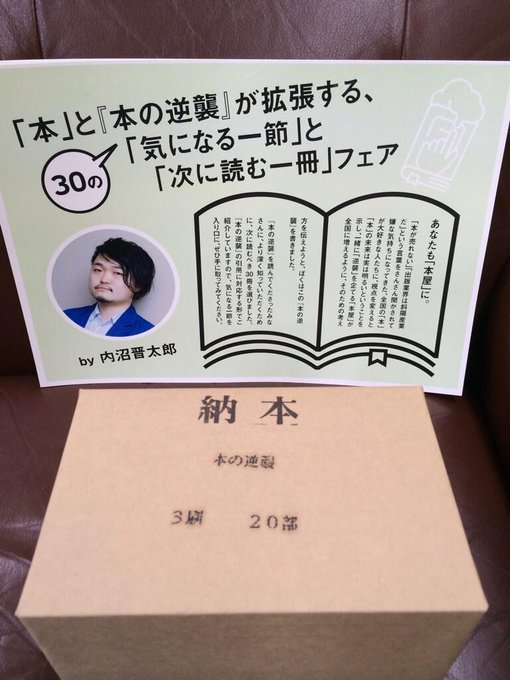 「本」と『本の逆襲』が拡張する、
30の
「気になる一節」と
「次に読む一冊」フェア
あなたも「本屋」に。
「本が売れない」「出版業界は斜陽産業
だ」という言葉をさんざん聞かされて
嫌な気持ちになってきた、全国の「本」
が大好きな人たちに、視点を変えると
「本」の未来は実は明るいということを
示し、一緒に「逆襲」を企てる「本屋」が
全国に増えるように、そのための考え
方を伝えようと、ぼくはこの「本の逆
襲」を書きました。
「本の逆襲」を読んでくださったみな
さんに、より深く知っていただくため
に、次に読むべき30冊を選びました。
「本の逆襲」の引用に対応する形でご
紹介していますので、「気になる一節」を
入り口に、ぜひ手に取ってみてください。
by 内沼晋太郎
納本
本の逆襲
3刷 20部